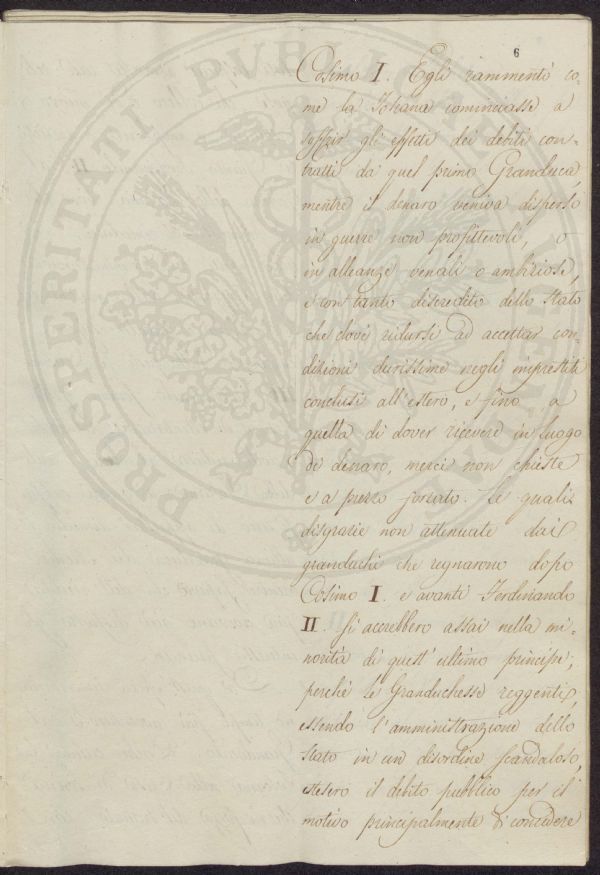 6
Cosimo I. Egli rammentò co-
me la Toscana cominciasse a
soffrir gli effetti dei debiti con-
tratti da quel primo Granduca,
mentre il denaro veniva disperso
in guerre non profittevoli, o
in alleanze venali o ambiziose,
e con tanto discredito dello stato
che dovè ridursi ad accettar con-
dizioni durissime negli imprestiti
conclusi all'estero, e fino a
quella di dover ricevere in luogo
di denaro, merci non chieste
e a prezzo forzato. Le quali
disgrazie non attenuate dai
granduchi che regnarono dopo
Cosimo I. e avanti Ferdinando
II. si accrebbero assai nella mi-
norità di quest'ultimo principe;
perchè le Granduchesse reggenti,
essendo l'amministrazione dello
stato in un disordine scandaloso,
estesero il debito pubblico per il
motivo principalmente di concedere
PROSPERITATI PVBLICAE